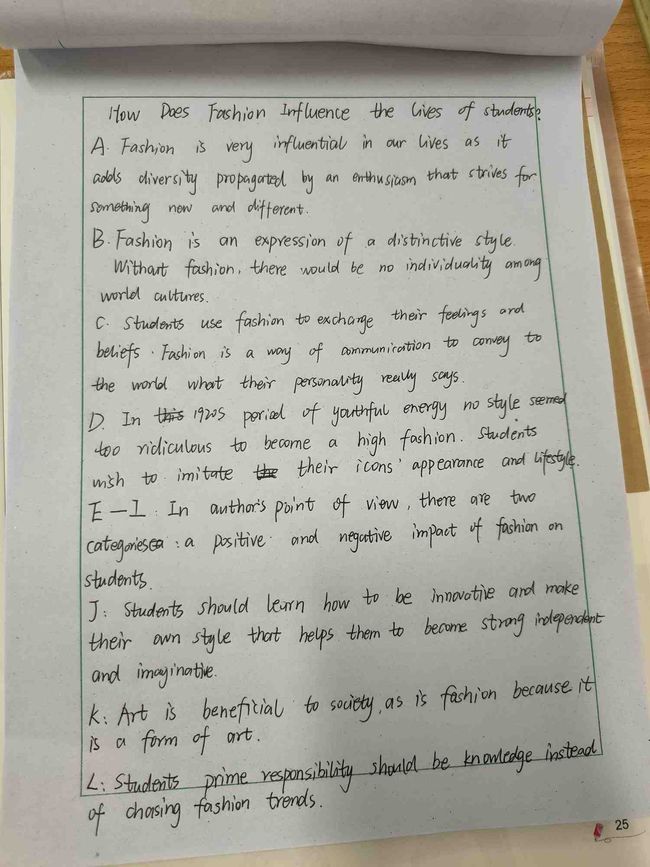 How Does Fashion Influence the lives of students?
A. Fashion is very influential in our lives as it
adds diversity propagated by an enthusiasm that strives for
something new and different.
B. Fashion is an expression of a distinctive style.
Without fashion, there would be no individuality among
world cultures.
C. Students use fashion to exchange their feelings and
beliefs. Fashion is a way of communication to convey to
the world what their personality really says.
D. In this 1920s period of youthful energy no style seemed
too ridiculous to become a high fashion. Students
wish to imitate the their icons' appearance and lifestyle.
E-I: In author's point of view, there are two
categories: a positive and negative impact of fashion on
students.
J: Students should learn how to be innovative and make
their own style that helps them to become strong independent
and imaginative.
K: Art is beneficial to society, as is fashion because it
is a form of art.
L: Students prime responsibility should be knowledge instead
of chasing fashion trends.
25